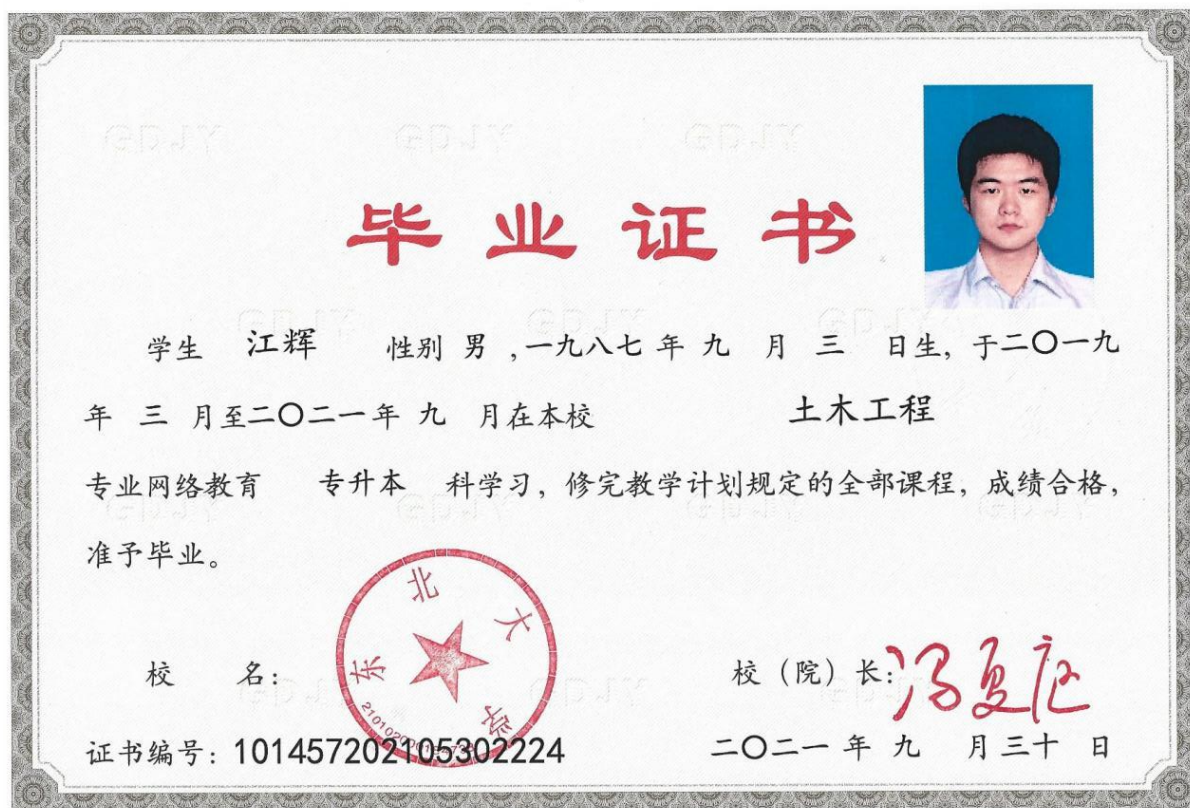 毕业证书
学生 江辉 性别 男 ,一九八七 年 九 月 三 日生, 于二〇一九
年 三 月至二〇二一年 九 月在本校 土木工程
专业网络教育 专升本 科学习, 修完教学计划规定的全部课程, 成绩合格,
准予毕业。
东北大学
校 名:
校（院）长: 冯夏庭
证书编号: 101457202105302224
二〇二一 年 九 月 三十 日